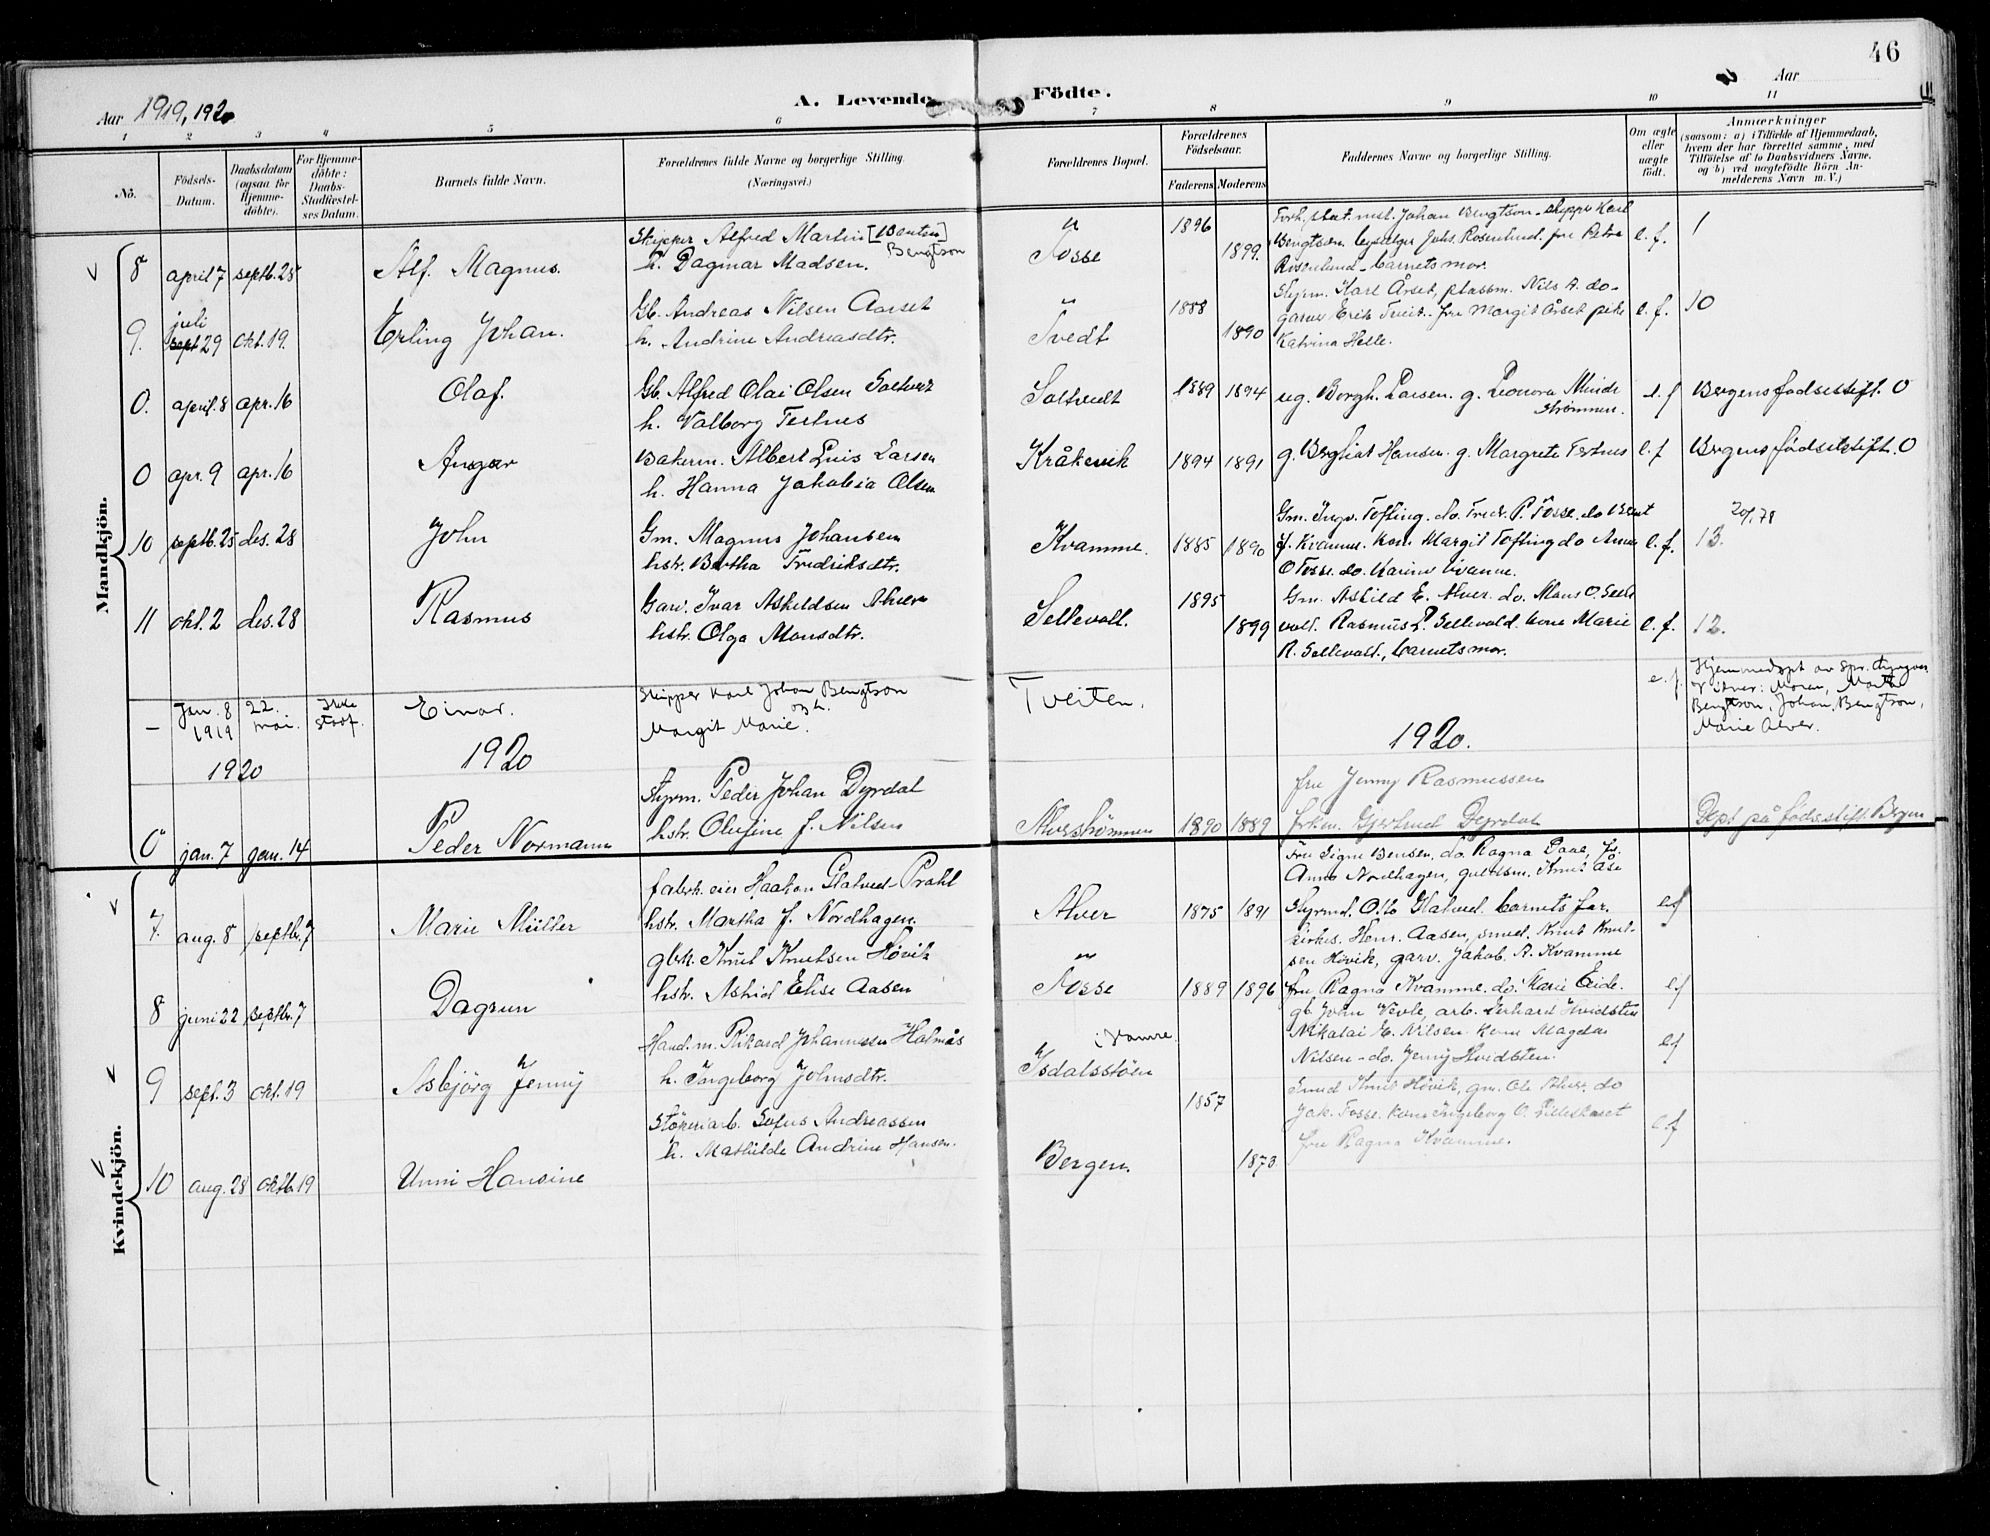 46
Aar 1919, 1920
A. Levende Födte.
Aar
1 2 3 4 5 6 7 8 9 10 11
No.
Födsels-Datum.
Daabsdatum (ogsaa for Hjemme-döbte).
For Hjemme-döbte: Daabs-Stadfæstel-ses Datum.
Barnets fulde Navn.
Forældrenes fulde Navne og borgerlige Stilling.
(Næringsvei.)
Forældrenes Bopæl.
Forældrenes Födselsaar.
Faderens Moderens
Faddernes Navne og borgerlige Stilling.
Om ægte eller uægte födt.
Anmærkninger
(saasom: a) i Tilfælde af Hjemmedaab,
hvem der har forrettet samme, med
Tilföielse af to Daabsvidners Navne.
og b) ved uægtefödte Börn An-
melderens Navn m. V.)
Mandkjön.
8 april 7 septb. 28 Alf. Magnus.
Skipper Alfred Martin [Bentsen] Bengtson
h. Dagmar Madsen.
Tosse 1896 1899
Johan Bengtson - skipper Karl
Bengtson, Johs. Rosenlund. fru Petra
Rosenlund - barnets mor.
e. f. 1
9. juli sept 29 okt. 19. Erling Johan.
Gb. Andreas Nilsen Aarset
h. Andrine Andreasdtr.
Tvedt 1888 1890
Styrm. Karl Årset, plassm. Nils A. do -
garver Erik Tveit - fru Margit Årset pike
Katrina Helle.
e. f. 10
0. april 8 apr. 16 Olaf.
Gb. Alfred Olai Olsen Soltvedt
h. Valborg Tertnes
Soltvedt 1889 1894
ug. Borgh. Larsen. g. Leonora Minde
Strømmen.
e. f Bergens fødselstift. 0
0 apr. 9 apr. 16 Ansgar
Bakerm. Albert Luis Larsen
h. Hanna Jakobia Olsen
Kråkevik 1894 1891
g. Bergliot Hansen. g. Margrete Tertnes
e. f Bergens fødselstift. 0
10 septb. 25 des. 28 John
Gm. Magnus Johansen
hstr. Bertha Fredriksdtr.
Kvamme. 1885 1890
Gm. Ingv. Tofting. do. Fredr. P. Tosse. do Bernt
J. Kvamme. kone Margit Tofting do Anna
O Tosse. do. Karine Kvamme.
e. f. 13.
11 okt. 2 des. 28 Rasmus
Garv. Ivar Askeldsen Alver
hstr. Olga Monsdtr.
Sellevoll. 1895 1899
Gm. Askild E. Alver. do. Mons O. Selle
vold. Rasmus P. Sellevold. kone Marie
R. Sellevold., barnets mor.
e. f. 12.
- Jan. 8 1919 22. mai. Ikke stadf. Einar.
Skipper Karl Johan Bengtson
og h.
Margit Marie.
Tveiten.
e. f. Hjemmedøpt av
Moren, Marthe
Bengtson, Johan Bengtson,
Marie Alver.
1920 1920 1920.
0 jan. 7 jan. 14 Peder Normann
styrm. Peder Johan Dyrdal
hstr. Olufine J. Nilsen
Alverstrømmen 1890 1889
fru Jenny Rasmussen
frkn. Gjertrud Dyrdal
Døpt på fødsstift. Bergen
Kvindekjön.
7. aug. 8 septb. 7 Marie Müller
fabrk. eier Haakon Glatved-Prahl
hstr. Martha J. Nordhagen.
Alver 1875 1891
Fru Signe Bensen, do. Ragna Daae, fr.
Anna Nordhagen, gullsm. Knut Åse
Styrmd. Otto Glatved. barnets far.
ef
8 juni 22 septbr. 7 Dagrun
gbk. Knut Knutsen Høvik
hstr. Astrid Elise Aasen
Tosse 1889 1896
kirkes. Henr. Aasen, smed. Knut Knut-
sen Høvik, garv. Jakob A. Kvamme
fru Ragna Kvamme. do. Marie Eide.
ef
9 sept. 3 okt. 19 Asbjörg Jenny
Hand. m. Rikard Johannesen Holmås
h. Ingeborg Johnsdtr.
Isdalsstöen
gb. John Vevle, arb. Gerhard Hvidsten
Nikolai E. Nilsen kone Magda
Nilsen - do. Jenny Hvidsten.
ef
10 aug. 28 oktb. 19 Unni Hansine
Stökeriarb. Sofus Andreassen
h. Mathilde Andrine Hansen.
Bergen. 1857 1873
Smed Knut Høvik, gm. Ole Alver. do
Jak. Tosse. kone Ingeborg O. Lilleskaret
fru Ragna Kvamme.
e.f